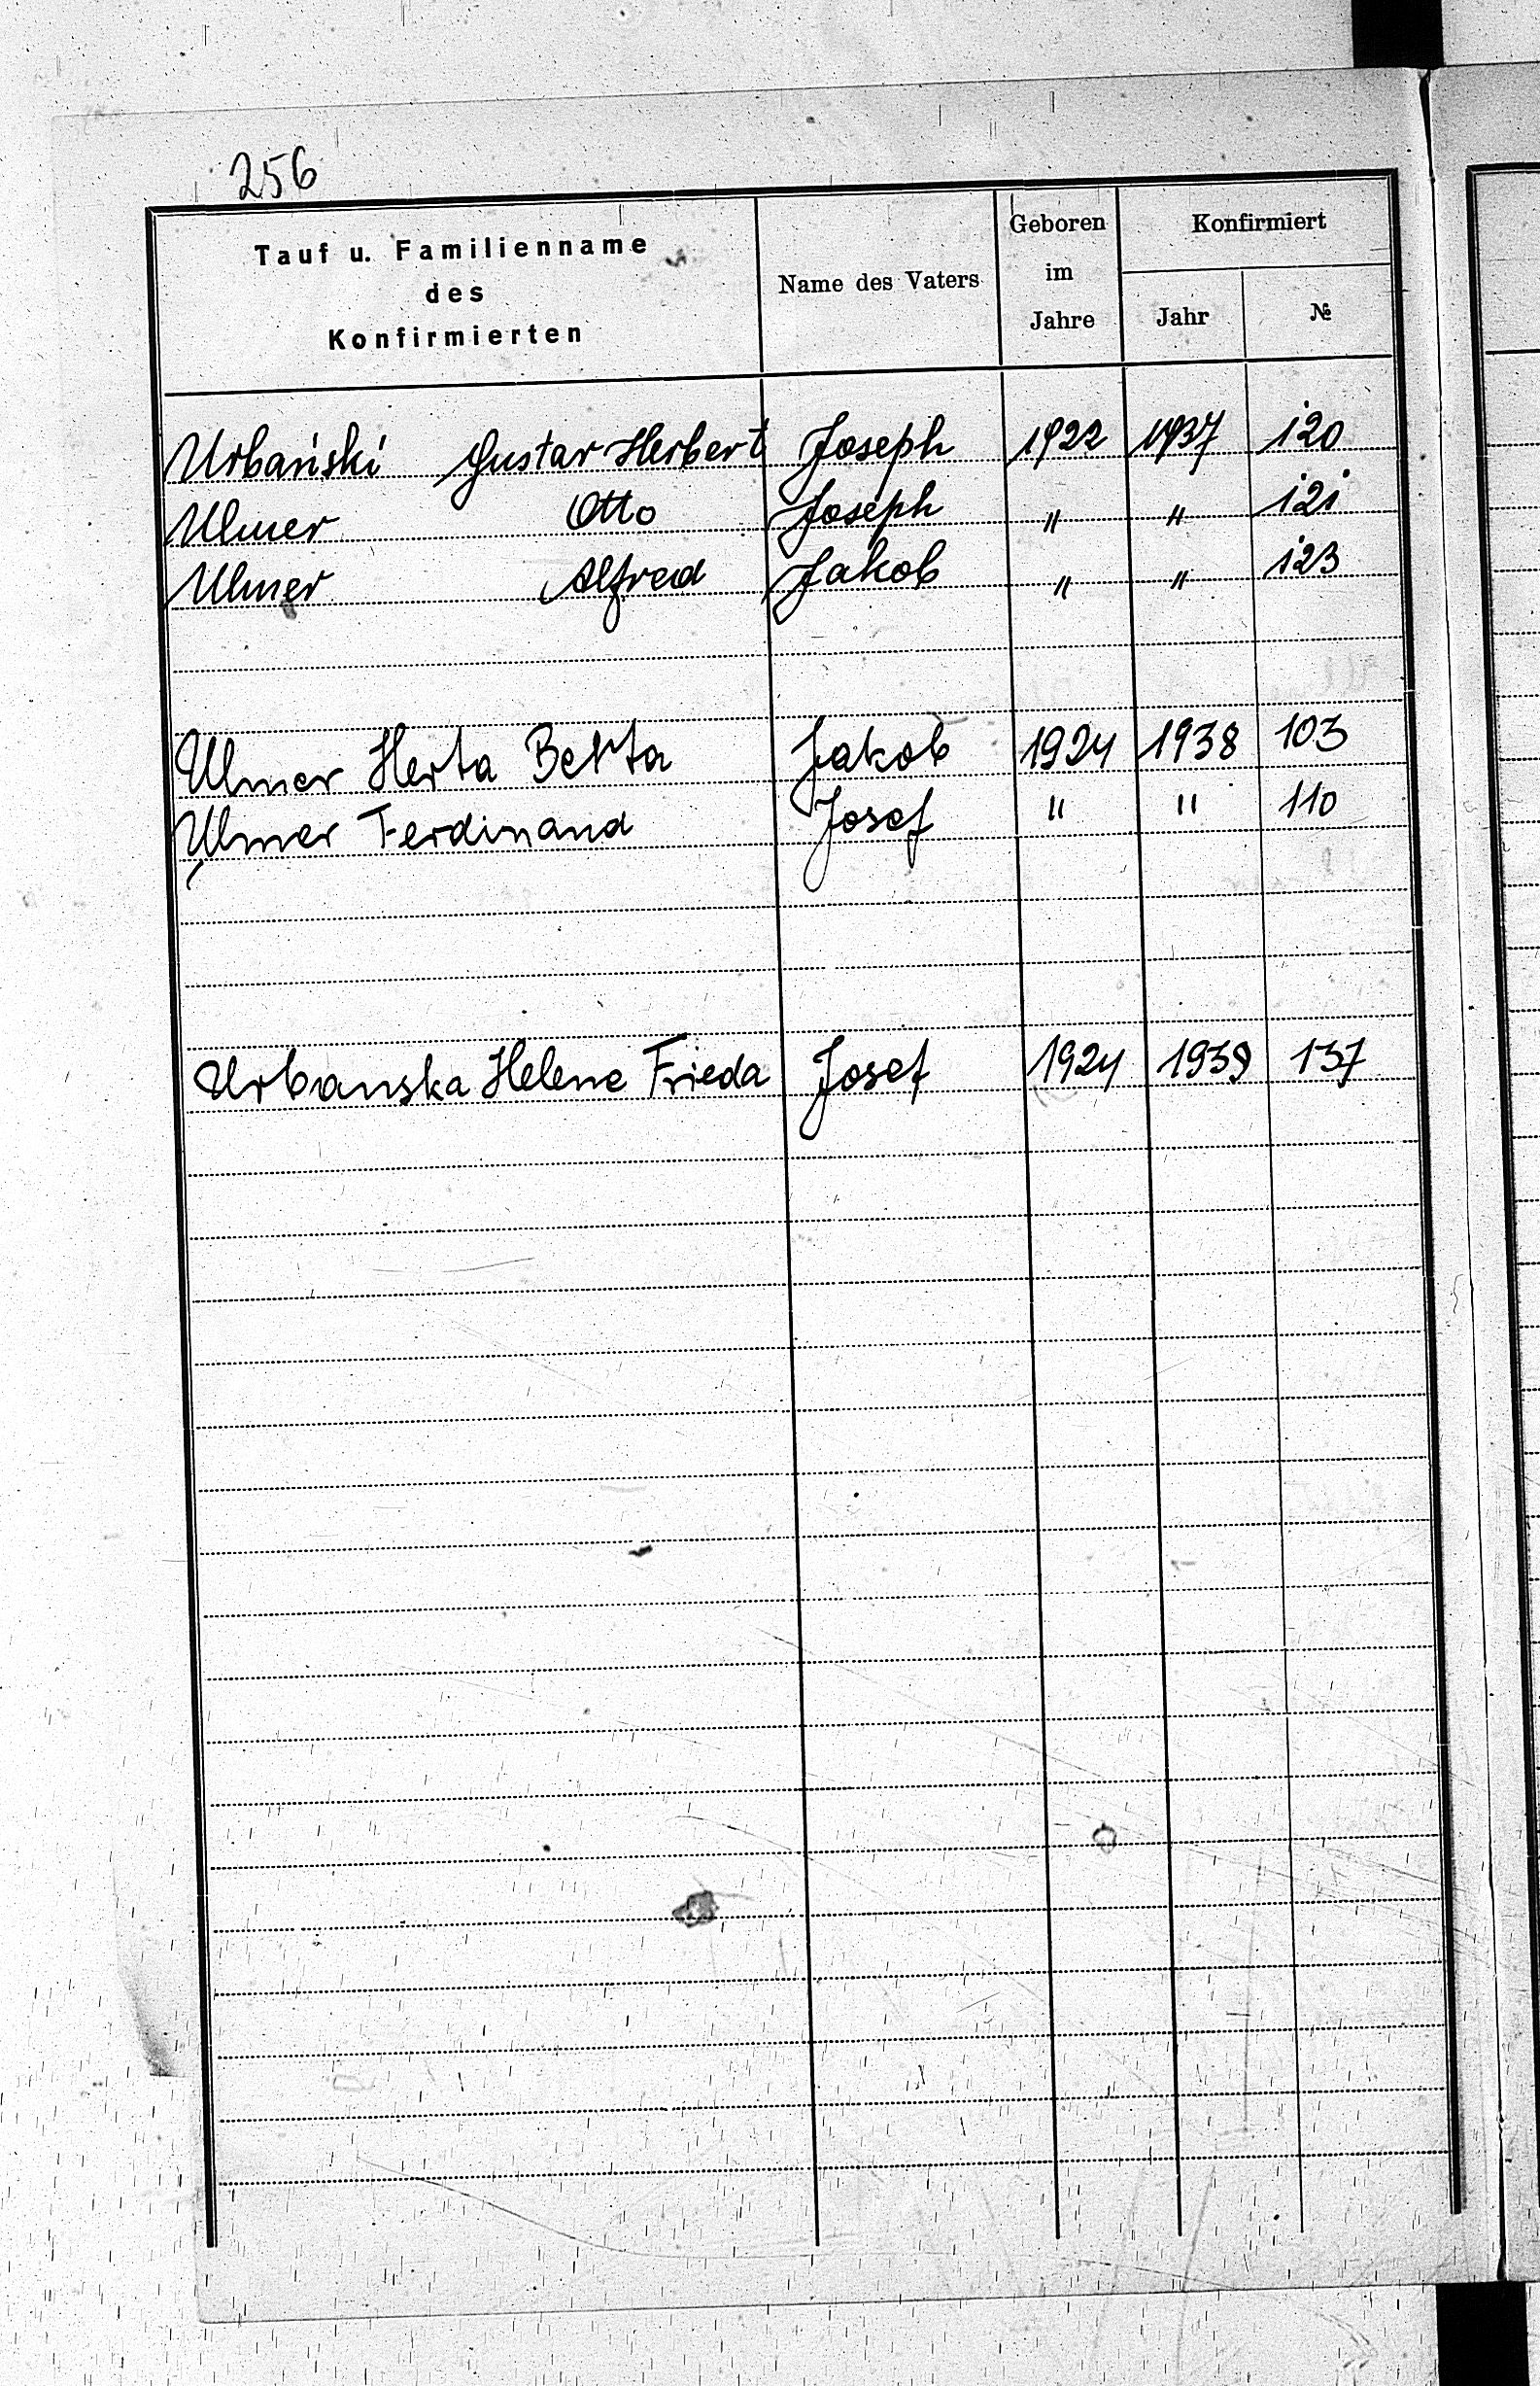 256
Tauf u. Familienname
des
Konfirmierten
Name des Vaters
Geboren
im
Jahre
Konfirmiert
Jahr
№
Urbański Gustav Herbert Joseph 1922 1937 120
Ulmer Otto Joseph " " 121
Ulmer Alfred Jakob " " 123
Ulmer Herta Berta Jakob 1924 1938 103
Ulmer Ferdinand Josef " " 110
Urbanska Helene Frieda Josef 1924 1939 137